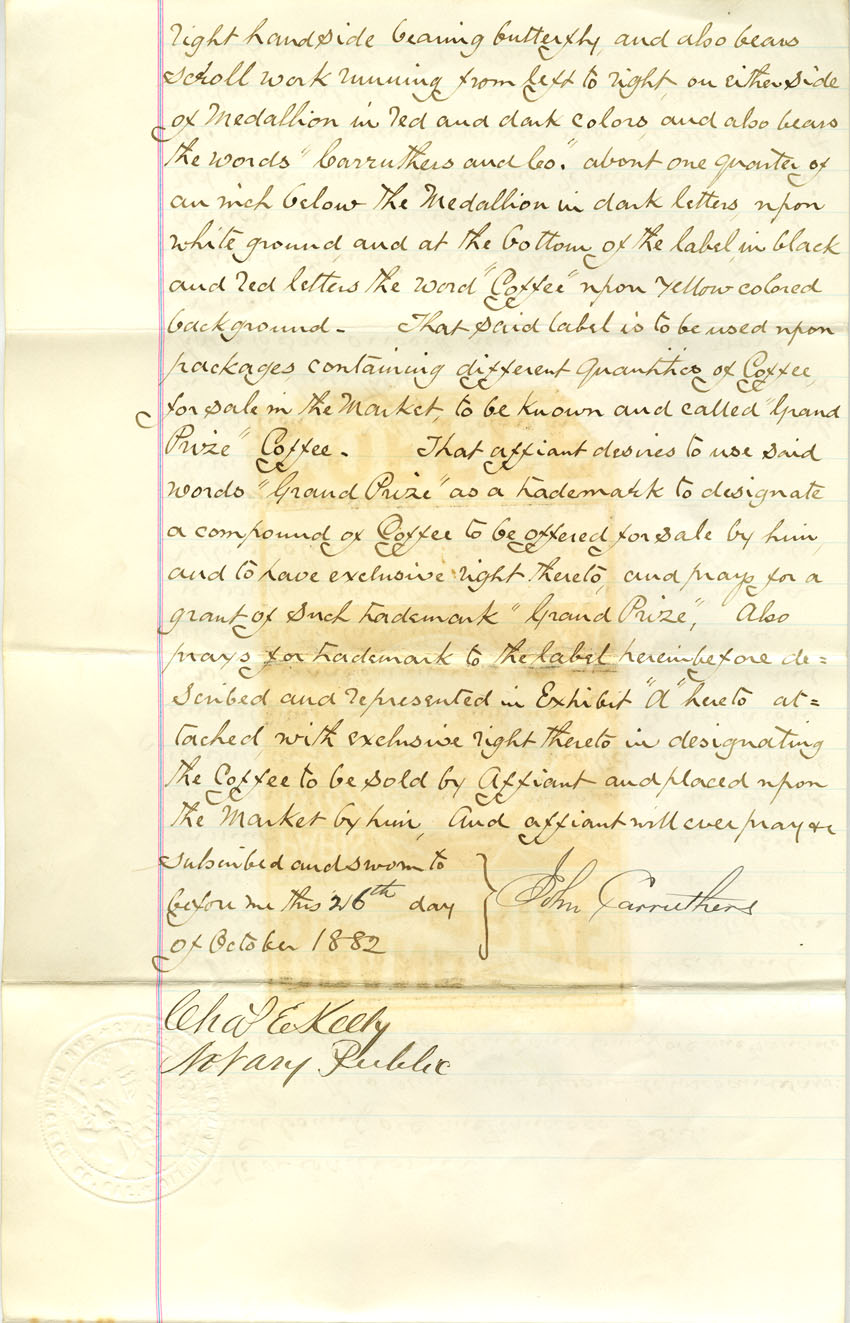 right hand side bearing butterfly, and also bears
scroll work running from left to right, on either side
of Medallion in red and dark colors, and also bears
the words "Carruthers and Co." about one quarter of
an inch below the Medallion in dark letters, upon
white ground, and at the bottom of the label, in black
and red letters the word "Coffee" upon yellow colored
background - That said label is to be used upon
packages containing different quantities of Coffee,
for sale in the Market, to be known and called "Grand
Prize" Coffee - That affiant desires to use said
words "Grand Prize" as a trademark to designate
a compound of Coffee to be offered for sale by him,
and to have exclusive right thereto, and prays for a
grant of such trademark "Grand Prize", Also
prays for trademark to the label hereinbefore de=
scribed and represented in Exhibit "A" hereto at=
tached, with exclusive right thereto in designating
the Coffee to be sold by Affiant and placed upon
the Market by him, And affiant will ever pray &c
subscribed and sworn to
before me this 26th day
of October 1882
} John Carruthers
Chas E Kelly
Notary Public